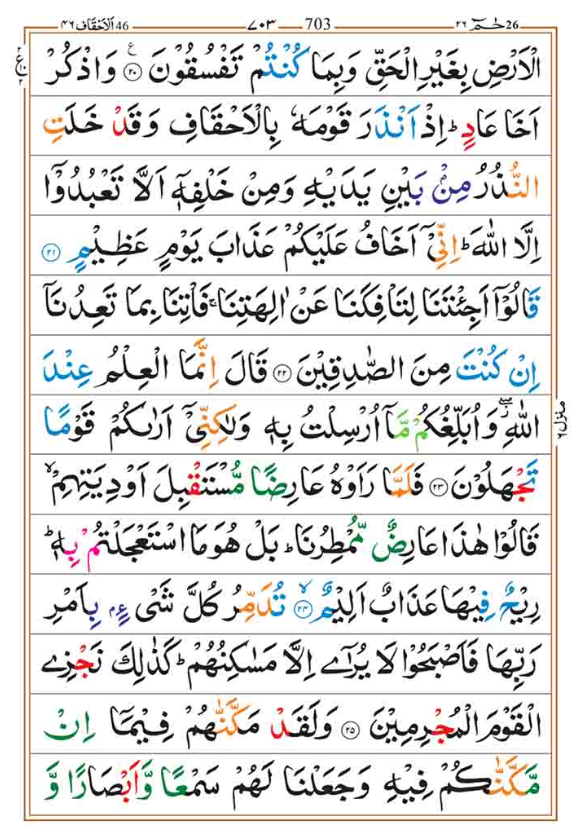 46 اَلْاَحْقَاف ۴۶ ۷۰۳ 703 ۲۶ حٰـمٓ 26
الْاَرْضِ بِغَيْرِ الْحَقِّ وَبِمَا كُنْتُمْ تَفْسُقُوْنَ ﴿۲۰﴾ وَاذْكُرْ
اَخَا عَادٍؕ اِذْ اَنْذَرَ قَوْمَهٗ بِالْاَحْقَافِ وَقَدْ خَلَتِ
النُّذُرُ مِنْۢ بَيْنِ يَدَيْهِ وَمِنْ خَلْفِهٖۤ اَلَّا تَعْبُدُوْۤا
اِلَّا اللّٰهَؕ اِنِّىْۤ اَخَافُ عَلَيْكُمْ عَذَابَ يَوْمٍ عَظِيْمٍ ﴿۲۱﴾
قَالُوْۤا اَجِئْتَنَا لِتَاْفِكَنَا عَنْ اٰلِهَتِنَاۚ فَاْتِنَا بِمَا تَعِدُنَاۤ
اِنْ كُنْتَ مِنَ الصّٰدِقِيْنَ ﴿۲۲﴾ قَالَ اِنَّمَا الْعِلْمُ عِنْدَ
اللّٰهِ ۖ وَاُبَلِّغُكُمْ مَّاۤ اُرْسِلْتُ بِهٖ وَلٰكِنِّىْۤ اَرٰٮكُمْ قَوْمًا
تَجْهَلُوْنَ ﴿۲۳﴾ فَلَمَّا رَاَوْهُ عَارِضًا مُّسْتَقْبِلَ اَوْدِيَتِهِمْ ۙ
قَالُوْا هٰذَا عَارِضٌ مُّمْطِرُنَاؕ بَلْ هُوَ مَا اسْتَعْجَلْتُمْ بِهٖؕ
رِيْحٌ فِيْهَا عَذَابٌ اَلِيْمٌۙ ﴿۲۴﴾ تُدَمِّرُ كُلَّ شَىْءٍۭ بِاَمْرِ
رَبِّهَا فَاَصْبَحُوْا لَا يُرٰٓى اِلَّا مَسٰكِنُهُمْؕ كَذٰلِكَ نَجْزِى
الْقَوْمَ الْمُجْرِمِيْنَ ﴿۲۵﴾ وَلَقَدْ مَكَّنّٰهُمْ فِيْمَاۤ اِنْ
مَّكَّنّٰكُمْ فِيْهِ وَجَعَلْنَا لَهُمْ سَمْعًا وَّاَبْصَارًا وَّ
منزل ۶